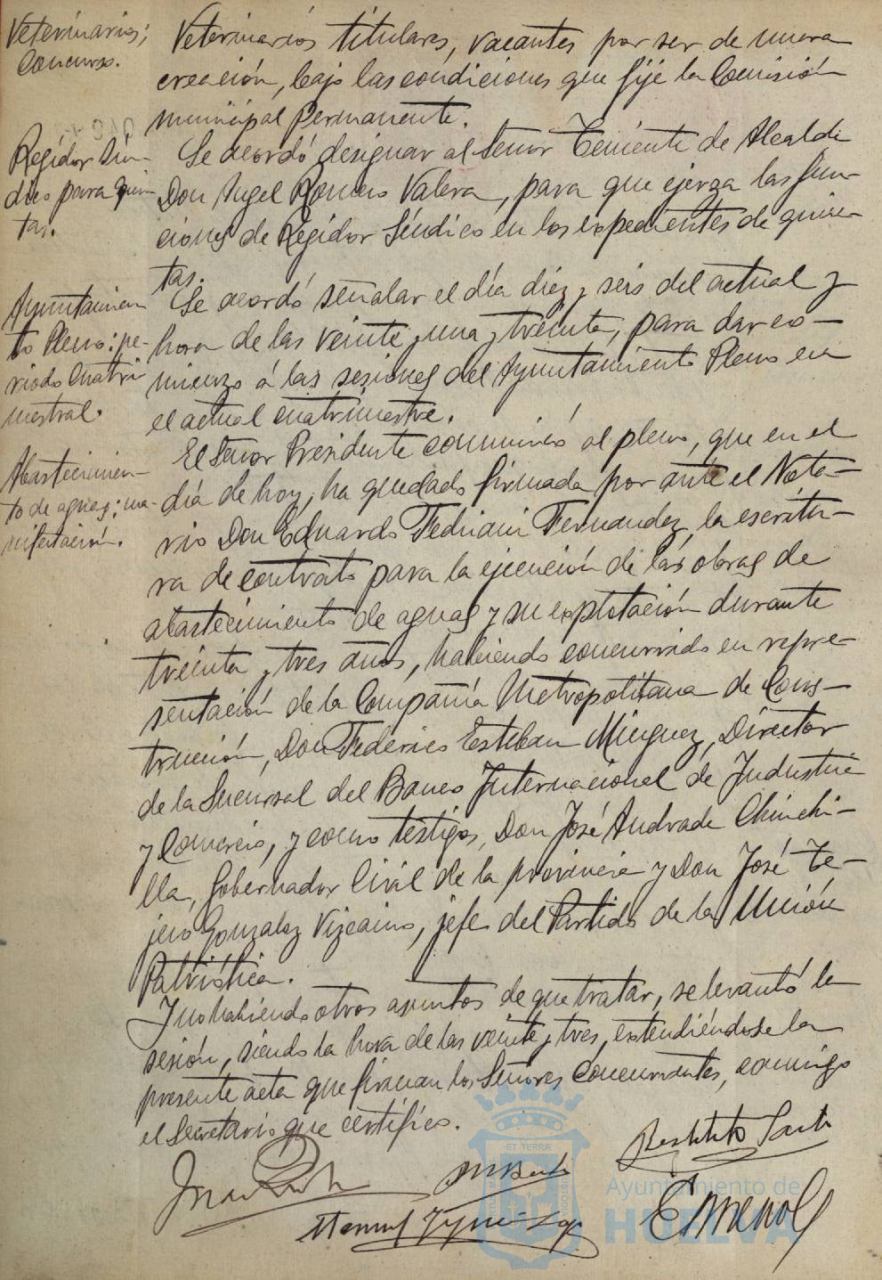 Veterinarios;
Concurso.
Veterinarios titulares, vacantes por ser de nueva
creación, bajo las condiciones que fije la Comisión
municipal Permanente.
Regidor Sín-
dico para quin-
tas.
Se acordó designar al Señor Teniente de Alcalde
Don Angel Romero Valera, para que ejerza las fun-
ciones de Regidor Síndico en los expedientes de quin-
tas.
Ayuntamien-
to Pleno: pe-
riodo cuatri
mestral.
Se acordó señalar el día diez y seis del actual y
hora de las veinte y una y treinta, para dar co-
mienzo á las sesiones del Ayuntamiento Pleno en
el actual cuatrimestre.
Abastecimien-
to de aguas: ma-
nifestación.
El Señor Presidente comunicó al pleno, que en el
día de hoy, ha quedado firmada por ante el Nota-
rio Don Eduardo Fedriani Fernandez, la escritu-
ra de contrato para la ejecución de las obras de
abastecimiento de aguas y su explotación durante
treinta y tres años, habiendo concurrido en repre-
sentación de la Compañía Metropolitana de Cons-
trucción, Don Federico Esteban Minguez, Director
de la Sucursal del Banco Internacional de Industria
y Comercio, y como testigos, Don José Andrade Chinchi-
lla, Gobernador Civil de la provincia y Don José Te-
jero Gonzalez Vizcaino, jefe del Partido de la Unión
Patriótica.
Y no habiendo otros asuntos de que tratar, se levantó la
sesión, siendo la hora de las veinte y tres, extendiéndose la
presente acta que firman los Señores concurrentes, conmigo
el Secretario que certifico.
Restituto
Manuel
Ayuntamiento de
HUELVA